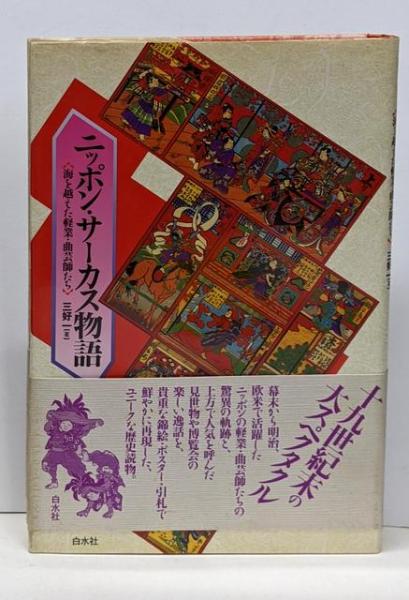 ニッポン・サーカス物語
《海を越えた軽業・曲芸師たち》
三好一[著]
十九世紀末の
大スペクタクル
幕末から明治、
欧米で活躍した
ニッポンの軽業・曲芸師たちの
驚異の軌跡と、
上方で人気を呼んだ
見世物や博覧会の
楽しい逸話を、
貴重な錦絵・ポスター・引札で
鮮やかに再現した、
ユニークな歴史読物。
白水社
白水社